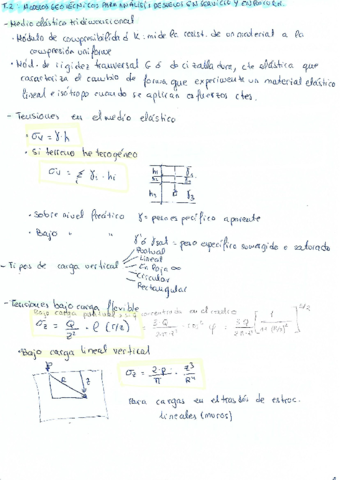 T.2 MODELOS GEOTÉCNICOS PARA ANÁLISIS DE SUELOS EN SERVICIO Y EN ROTURA.
- Medio elástico tridimensional
• Módulo de compresibilidad ó K: mide la resist. de un material a la
compresión uniforme
• Mód. de rigidez transversal G ó de cizalladura, cte elástica que
caracteriza el cambio de forma que experimenta un material elástico
lineal e isótropo cuando se aplican esfuerzos ctes.
- Tensiones en el medio elástico
• σv = γ·h
• Si terreno heterogéneo
σv = Σ γi · hi
h1 γ1
h2 γ2
h3 γ3
• Sobre nivel freático γ = peso específico aparente
• Bajo " " γ' ó γsat = peso específico sumergido o saturado
- Tipos de carga vertical
Puntual
Lineal
En faja ∞
Circular
Rectangular
- Tensiones bajo carga flexible
σz = Q/z² · f (r/z) = 3·Q/2π·z² · cos⁵ φ = 3·Q/2π·z² [1/1+(r/z)²]^5/2
• Bajo carga lineal vertical
P
R
z
σz = 2·P/π · z³/R⁴
Para cargas en el trasdós de estruc.
lineales (muros)